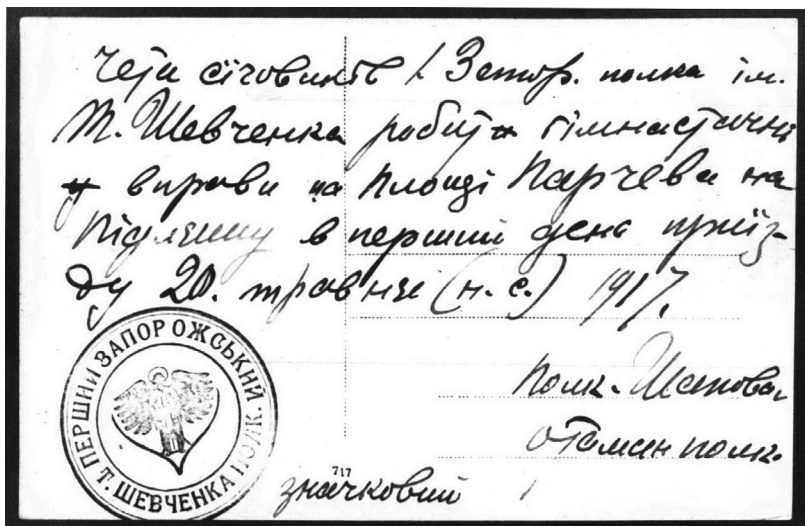 Чета січовиків 1 Запор. полка ім.
Т. Шевченка робить гімнастичні
вправи на площі Парчева на
Підляшу в перший день приїз-
ду 20. травня (н. с.) 1917.
Полк. Шаповал
отаман полк.
значковий
717
ПЕРШИЙ ЗАПОРОЖСЬКИЙ
Т. ШЕВЧЕНКА ПОЛК.